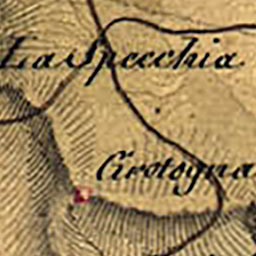 La Specchia
Cirotogna